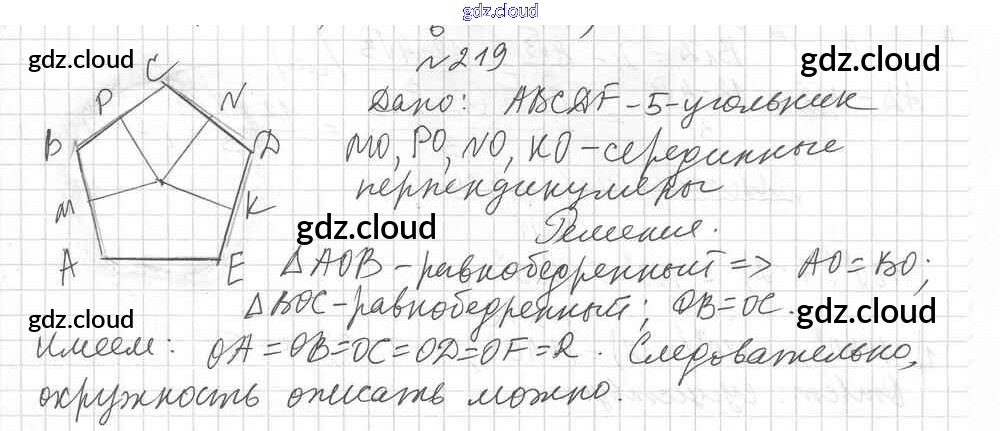 gdz.cloud
№219
gdz.cloud
gdz.cloud
C
P
N
Дано: ABCDF-5-угольник
B
D
MO, PO, NO, KO-серединные
перпендикуляры
M
K
gdz.cloud
Решение.
A
E
ΔAOB-равнобедренный => AO=BO;
ΔBOC-равнобедренный; OB=OC.
gdz.cloud
gdz.cloud
gdz.cloud
Имеем: OA=OB=OC=OD=OF=R. Следовательно,
окружность описать можно.